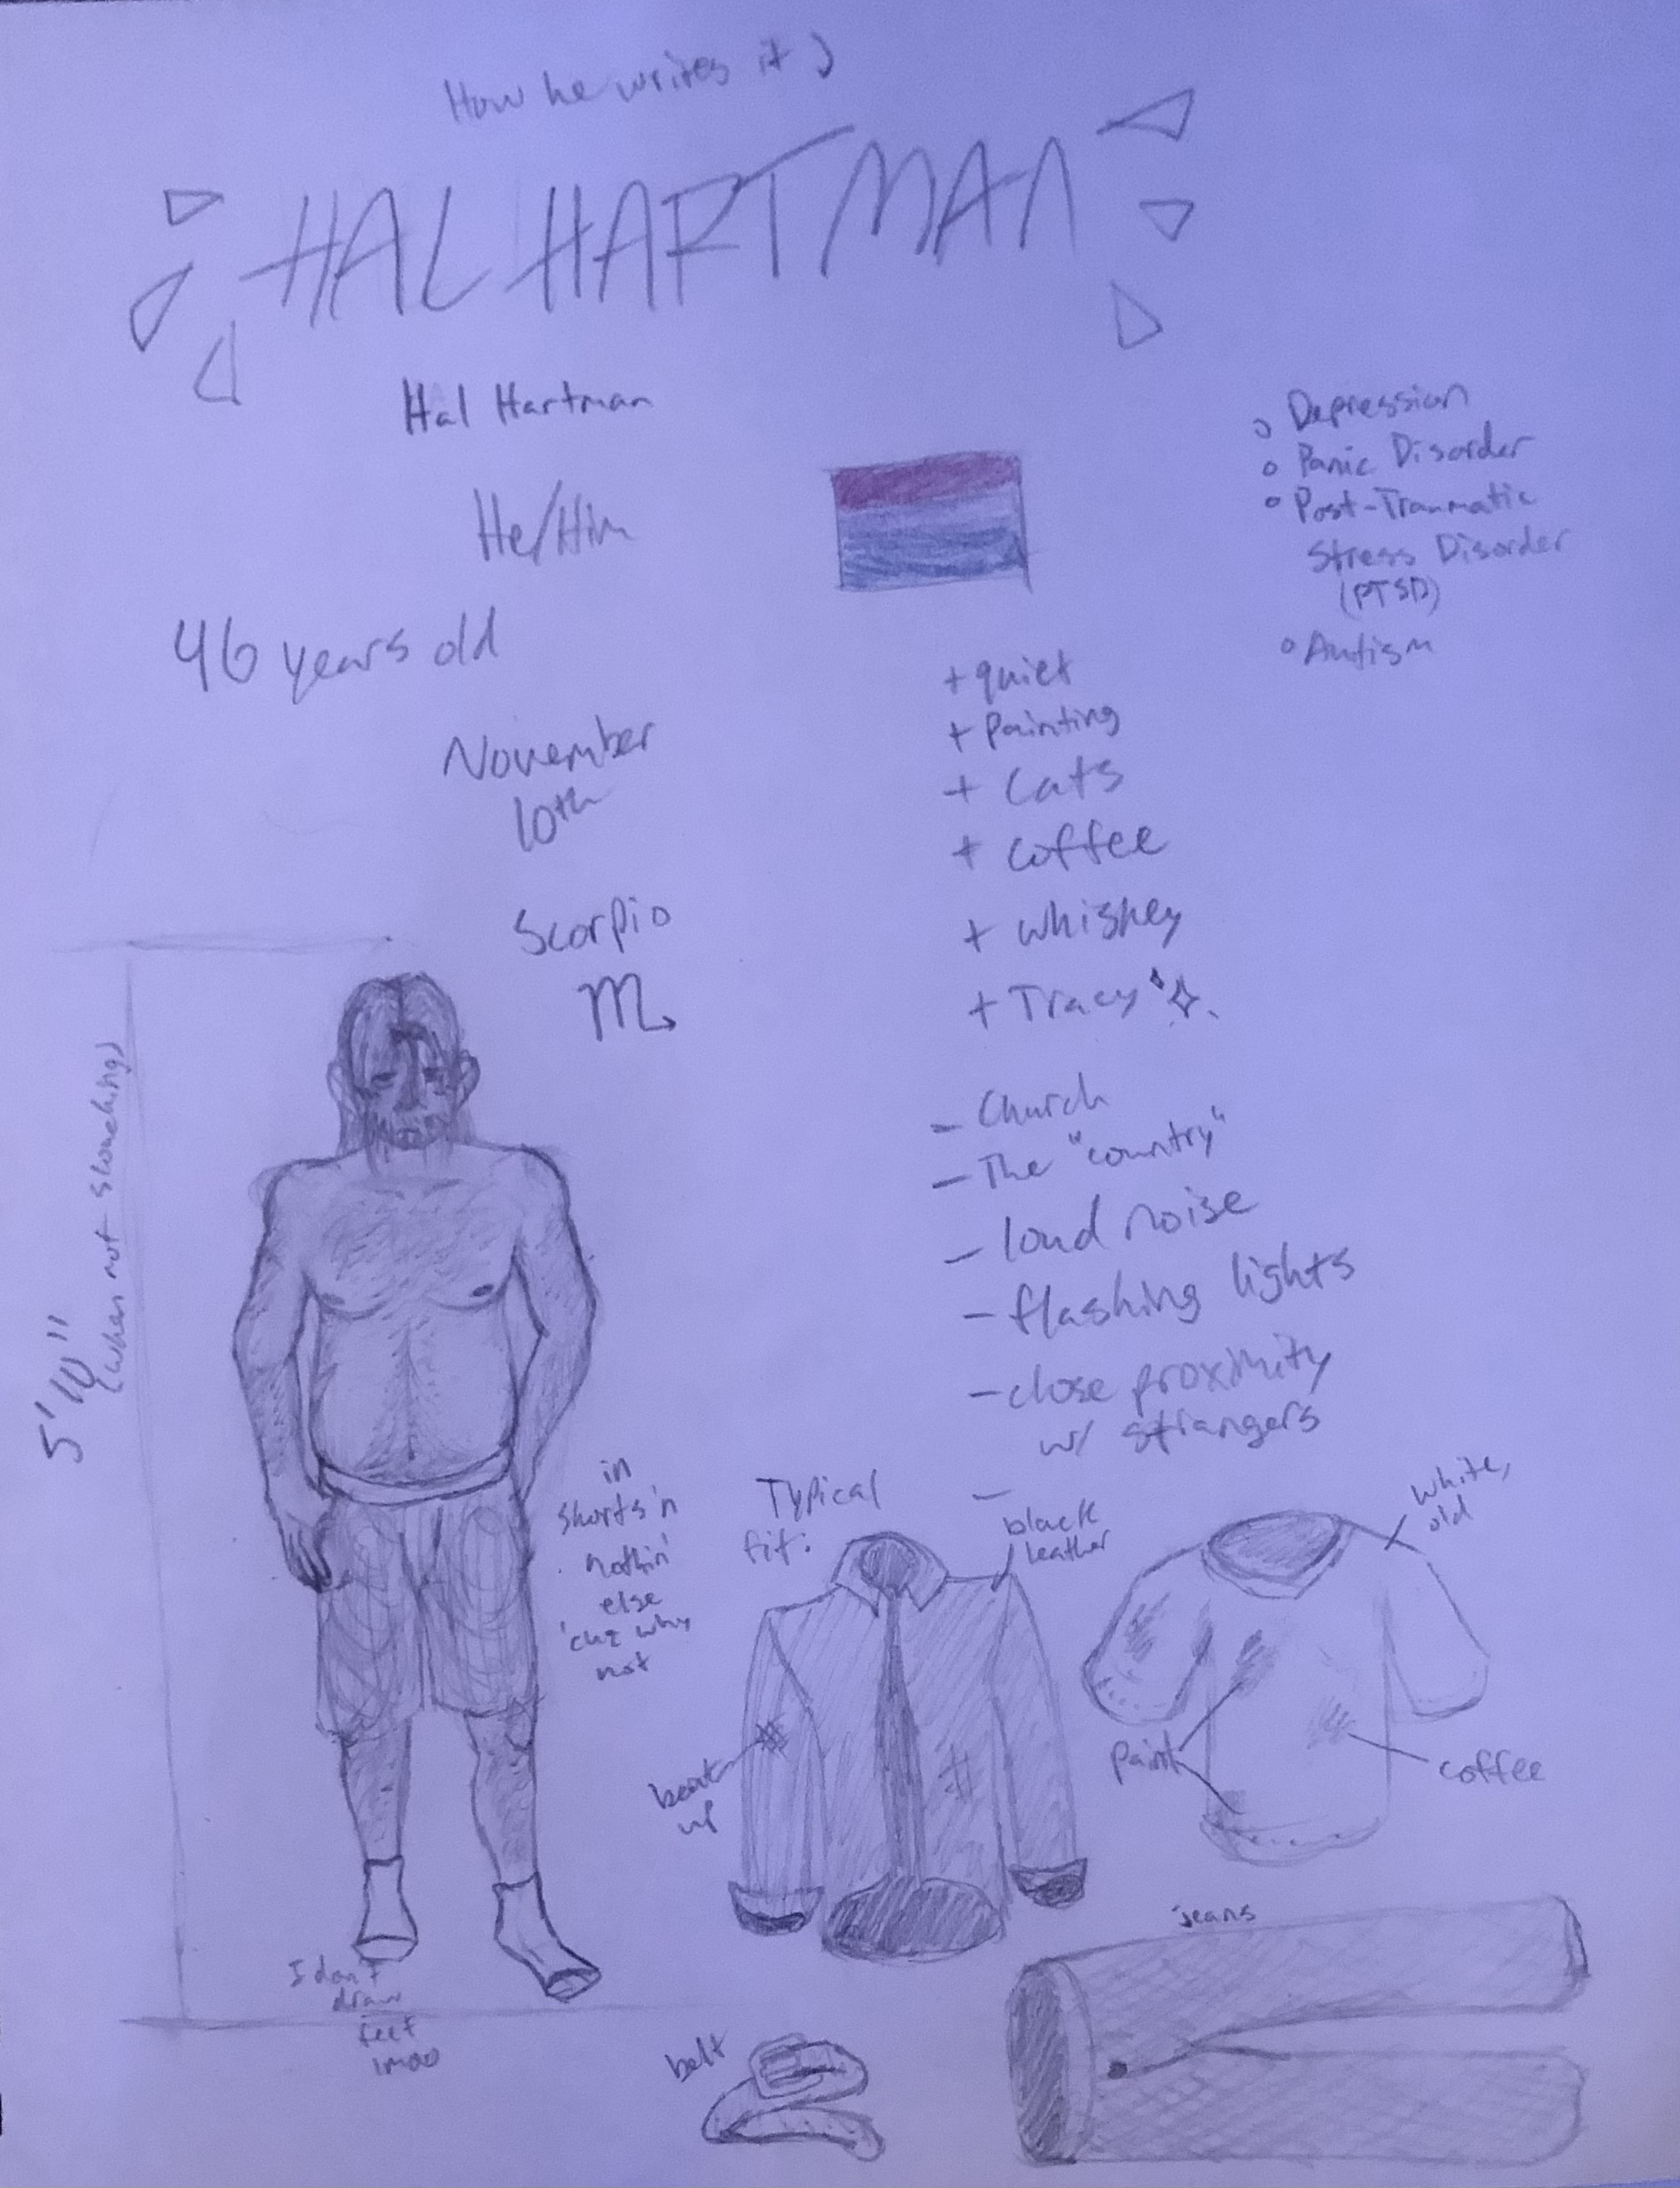 How he writes it
HAL HARTMAN
Hal Hartman
He/Him
46 years old
November
10th
Scorpio
♏
o Depression
o Panic Disorder
o Post-Traumatic
Stress Disorder
(PTSD)
o Autism
+ quiet
+ Painting
+ Cats
+ coffee
+ whiskey
+ Tracy
- Church
- The "country"
- loud noise
- flashing lights
- close proximity
w/ strangers
-
5'10"
(when not slouching)
in
shorts 'n
nothin'
else
'cuz why
not
I don't
draw
feet
lmao
Typical
fit:
black
leather
beat
up
white,
old
paint
coffee
jeans
belt